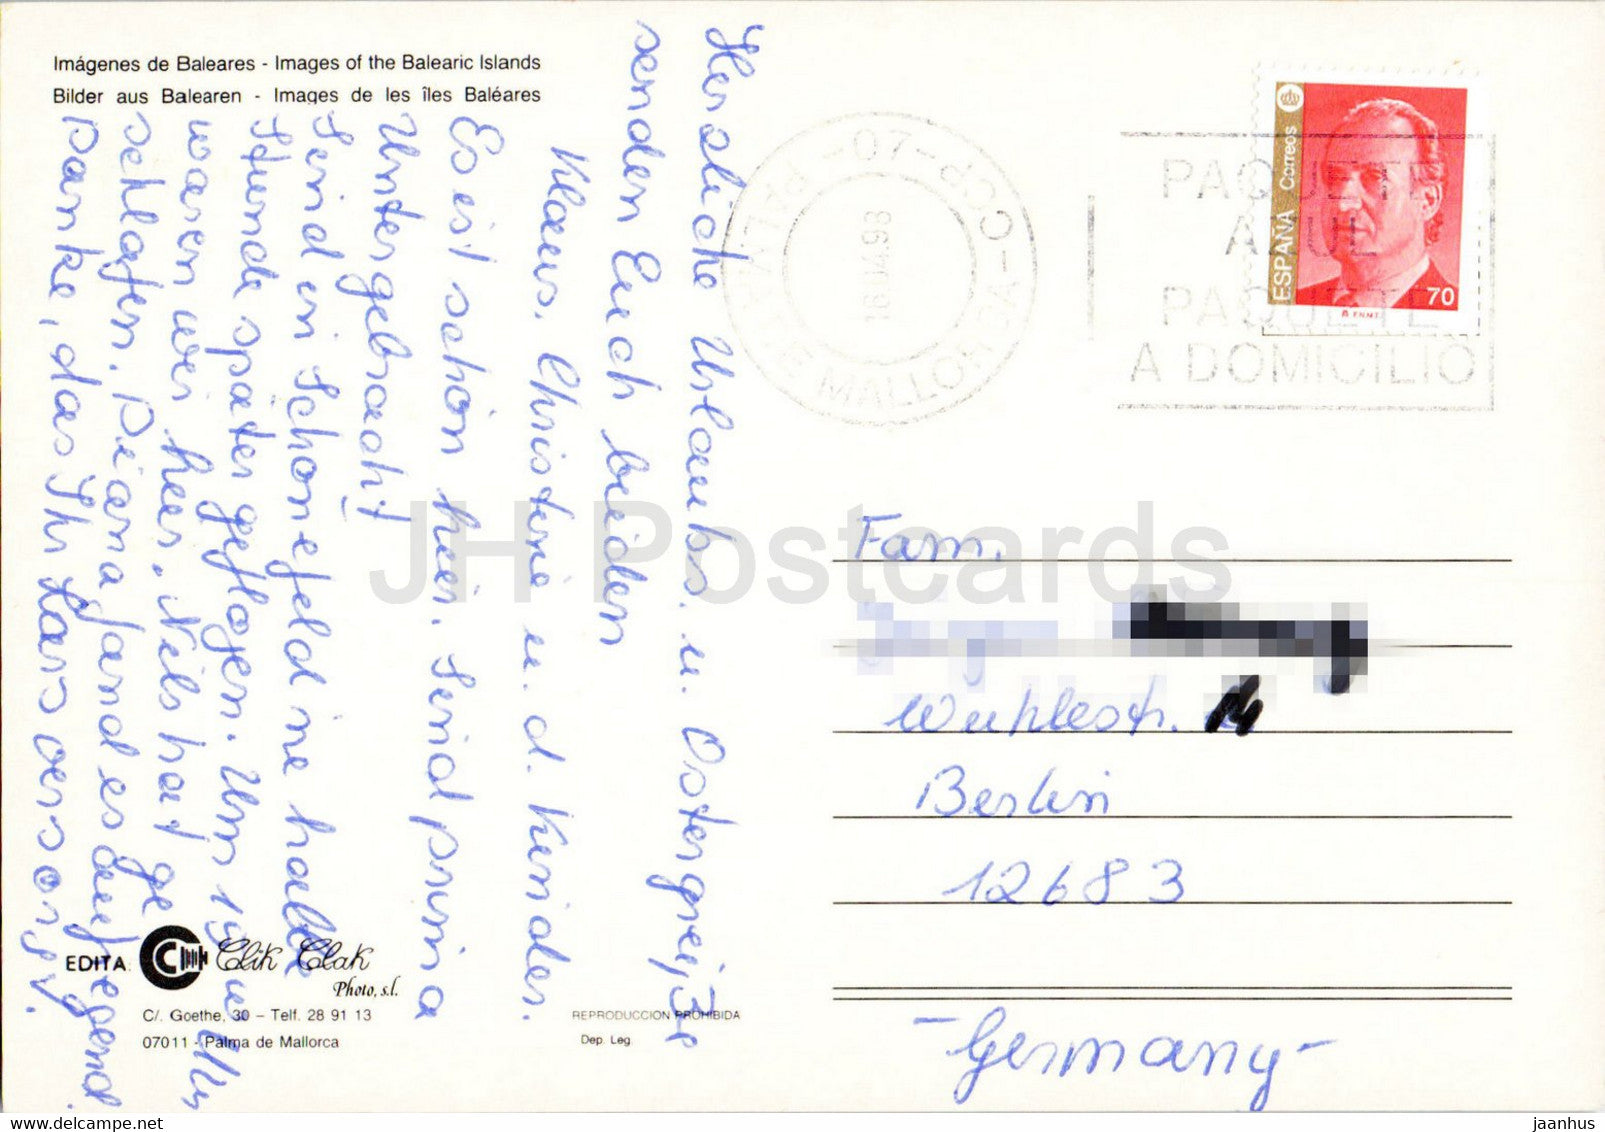 Imágenes de Baleares - Images of the Balearic Islands
Bilder aus Balearen - Images de les îles Baléares
Herzliche Urlaubs. u. Ostergrüße
senden Euch beiden
Klaus, Christine u. d. Kinder.
Es ist schön hier. Sind prima
Untergebracht!
Sind in Schönefeld ne halbe
Stunde später geflogen. Um 19 Uhr
waren wir hier. Nils hat ge
schlafen. Diana fand es aufregend.
Danke, das Ihr Lars versorgt.
EDITA:
Clik Clak
Photo, s.l.
C/. Goethe, 30 - Telf. 28 91 13
07011 - Palma de Mallorca
REPRODUCCION PROHIBIDA
Dep. Leg.
07-CCP-
PALMA DE MALLORCA
98
PAQUETE
A
PAQUETE
A DOMICILIO
ESPAÑA Correos
70
Fam.
Wuhlestr.
Berlin
12683
- Germany -
JH Postcards
jaanhus
www.delcampe.net